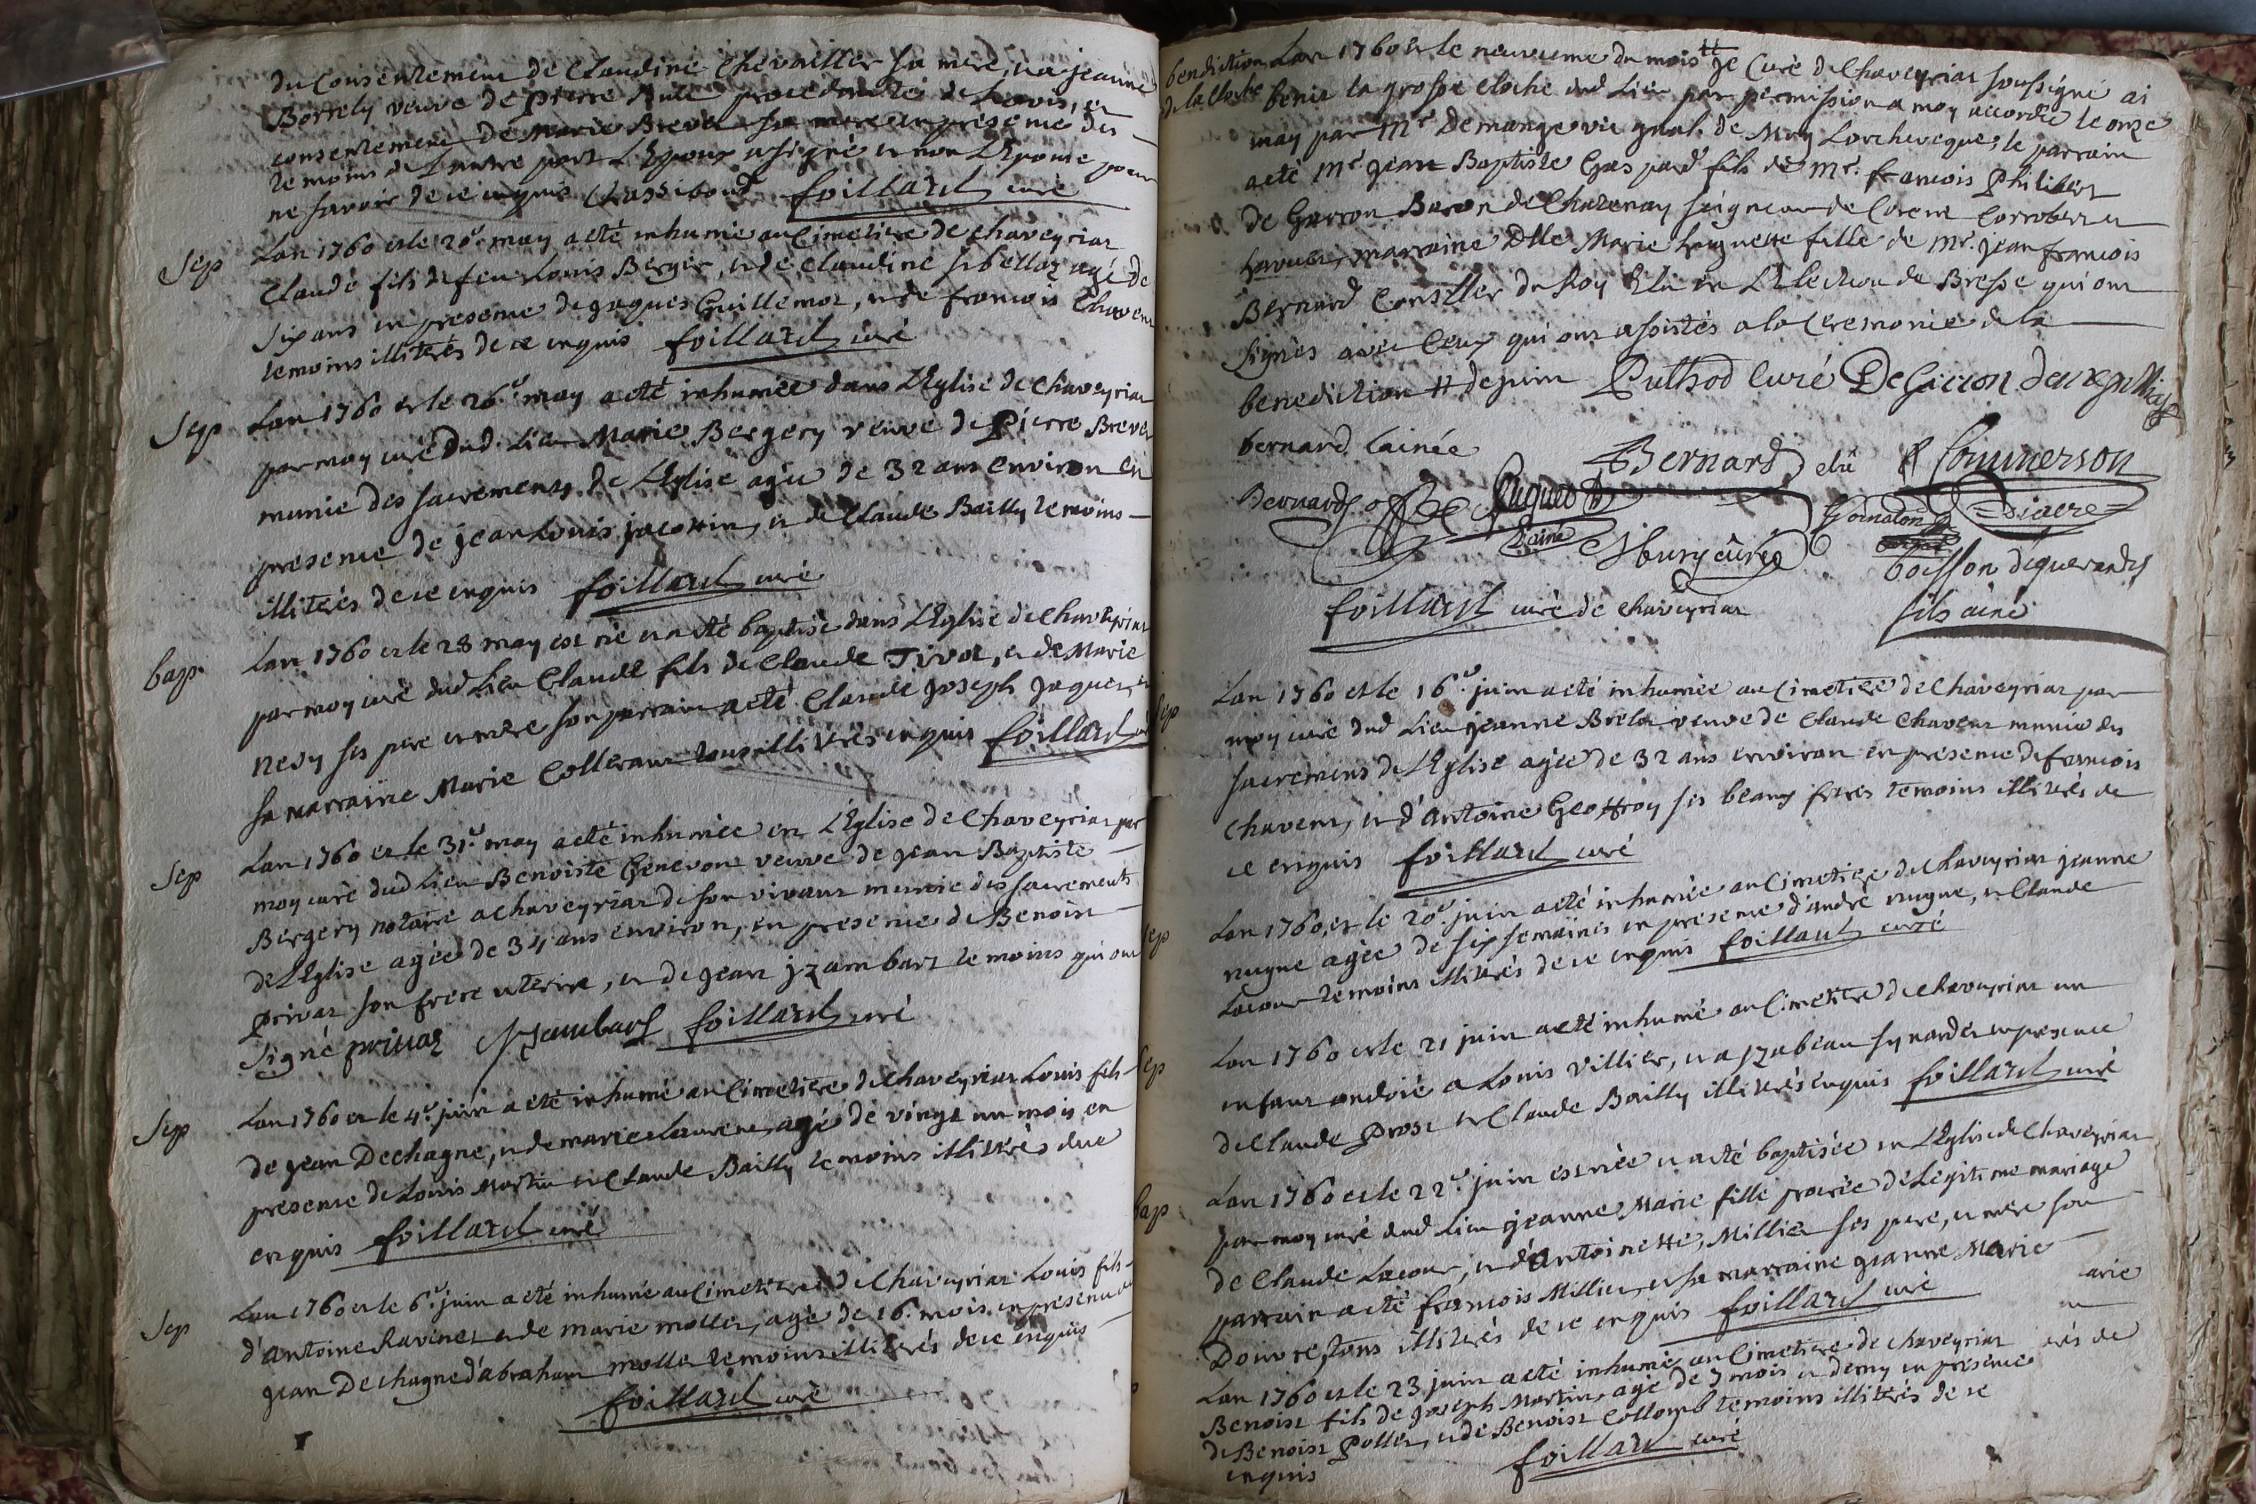 du Consentement de Claudine Chevallier sa mere, et a jeanne
veuve de pierre procedante de l'avis, et
consentement de Marie Brevet sa mere en presence des
temoins de L'autre part L'Epoux a signé et non L'Epouse pour
ne savoir de ce enquis Chassibout foillard curé
Sep Lan 1760 et le 20e. may a été inhumé au Cimetiere de Chaveyriat
Claude fils de feu Louis Berger, et de Claudine agé de
six ans en presence de jaques Guillemot, et de francois Chavent
temoins illiterés de ce enquis foillard curé
Sep Lan 1760 et le 26e. may a été inhumée dans L'Eglise de Chaveyriat
par moy curé dud. Lieu Marie Bergery veuve de Pierre Brevet
munie des sacrements de L'Eglise agée de 32 ans environ en
presence de jean Louis jacottin, et de Claude Bailly temoins
illiterés de ce enquis foillard curé
bap. Lan 1760 et le 28 may est né et a été baptisé dans L'Eglise de Chaveyriat
par moy curé dud Lieu Claude fils de Claude Tivot, et de Marie
Nesy ses pere et mere son parrain a été Claude joseph jaquet, et
sa marraine Marie Colleraut tous illiterés enquis foillard curé
Sep Lan 1760 et le 31e. may a été inhumée en L'Eglise de Chaveyriat par
moy curé dud Lieu Benoiste Genevon veuve de jean Baptiste
Bergery notaire a chaveyriat de son vivant munie des sacrements
de L'Eglise agée de 34 ans environ, en presence de Benoist
privat son frere uterin, et de jean jzambart temoins qui ont
signé privat jzambart foillard curé
Sep Lan 1760 et le 4e. juin a été inhumé au Cimetiere de Chaveyriat Louis fils
de jean Dechagne, et de marie Laurent, agé de vingt un mois en
presence de Louis Martin et Claude Bailly temoins illiterés de ce
enquis foillard curé
Sep Lan 1760 et le 6e. juin a été inhumé au Cimetiere de Chaveyriat Louis fils
d'antoine Ravinet et de marie mollet, agé de 16. mois en presence de
jean Dechagne d'abraham mollet temoins illiterés de ce enquis
foillard curé
benediction de la Cloche
Lan 1760 et le neuvieme du mois # je Curé de Chaveyriat soussigné ai
benit la grosse cloche dud Lieu par permission a moy accordée le onze
may par Mr. Demange vic gnal. de Mgr L'archeveque, le parrain
a été Mr. jean Baptiste Gaspard fils de Mr. francois Philibert
de Garron Baron de Chatenay seigneur de Corent et
marraine Dlle Marie huguette fille de Mr. jean francois
Bernard Conseller du Roy Elu en L'Election de Bresse qui ont
signés avec Ceux qui ont assistés a la Ceremonie de la
benediction # de juin Puthod Curé De Garron
bernard l'ainée Bernard elû Commerson
Bernard l'ainé Sbury curé Gornaton Diacre
boisson d'iquerandes
foillard curé de chaveyriat fils ainé
Sep Lan 1760 et le 16e. juin a été inhumée au Cimetiere de Chaveyriat par
moy curé dud Lieu jeanne Brelat veuve de Claude Chavent munie des
sacremens de L'Eglise agée de 32 ans environ en presence de francois
chavent, et d'Antoine Geoffroy ses beaux freres temoins illiterés de
ce enquis foillard curé
Sep Lan 1760, et le 20e. juin a été inhumée au Cimetiere de Chaveyriat jeanne
nugue agée de six semaines en presence d'andré nugue, et Claude
Lacour temoins illiterés de ce enquis foillard curé
Sep Lan 1760 et le 21 juin a été inhumé au Cimetiere de Chaveyriat un
enfant ondoié a Louis Villier, et a jzabeau en presence
de Claude Prost et Claude Bailly illiterés enquis foillard curé
bap Lan 1760 et le 22e. juin est née et a été baptisée en L'Eglise de Chaveyriat
par moy curé dud Lieu jeanne Marie fille procrée de Legitime mariage
de Claude Lacour, et d'antoinette Millier ses pere, et mere son
parrain a été francois Millier, et sa marraine jeanne Marie
illiterés de ce enquis foillard curé
Lan 1760 et le 23 juin a été inhumé au Cimetiere de Chaveyriat
Benoist fils de joseph Martin, agé de 7 mois et demy en presence
de Benoist Pollet, et de Benoist Collomb temoins illiterés de ce
enquis foillard curé